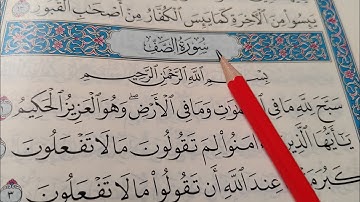 يَئِسُوا۟ مِنَ ٱلْءَاخِرَةِ كَمَا يَئِسَ ٱلْكُفَّارُ مِنْ أَصْحَٰبِ ٱلْقُبُورِ
سُورَةُ الصَّفِّ
بِسْمِ ٱللَّهِ ٱلرَّحْمَٰنِ ٱلرَّحِيمِ
سَبَّحَ لِلَّهِ مَا فِى ٱلسَّمَٰوَٰتِ وَمَا فِى ٱلْأَرْضِ ۖ وَهُوَ ٱلْعَزِيزُ ٱلْحَكِيمُ
يَٰٓأَيُّهَا ٱلَّذِينَ ءَامَنُوا۟ لِمَ تَقُولُونَ مَا لَا تَفْعَلُونَ
كَبُرَ عِندَ ٱللَّهِ أَن تَقُولُوا۟ مَا لَا تَفْعَلُونَ ٣